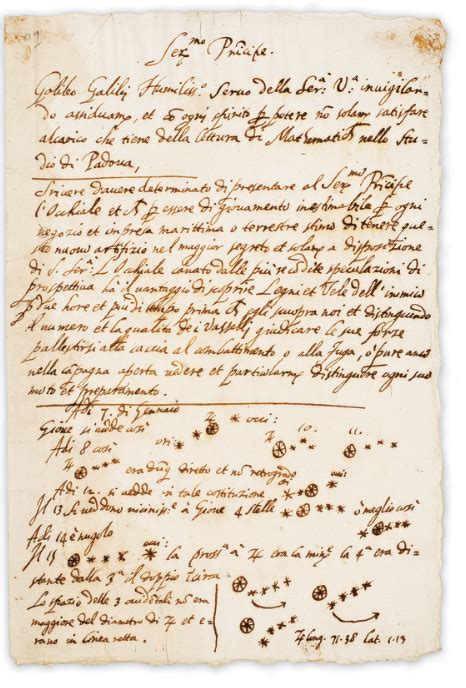 Ser.mo Prīcipe.
Galileo Galilei Humiliss.o Servo della Ser.a V.a invigilan-
do assiduamẽ, et cõ ogni spirito p potere nõ solamẽ satisfare
alcarico che tiene della lettura di Mathematicħ nello Stu-
dio di Padova,
Scrivere davere determinato di presentare al Ser.mo Prīcipe
l'Ochiale et p essere di giovamento inestimabile p ogni
negozio et impresa marittima o terrestre stimo di tenere que-
sto nuovo artifizio nel maggior segreto et solamẽ a disposizione
di S. Ser.a L'Ochiale cavato dalle più recõdite speculazioni di
prospettiva ha il vantaggio di scoprire Legni et Vele dell'inimico
p due hore et più di tempo prima egli scuopra noi et distinguendo
il numero et la qualità dei Vasselli giudicare le sue forze
pallestirsi alla caccia al combattimento o alla fuga, o pure anco
nella cãpagna aperta vedere et particolarmẽ distinguere ogni suo
moto et preparamento.
Adi 7. di Gennaio
Giove si vedde così ori. occi:
Adi 8 così 10. 11.
era dũq diretto et nõ retrogrado
Adi 12. si vedde in tale costituzione ori occi:
Il 13 si veddono viciniss.i à Giove 4 stelle ò meglio così
Adi 14 è nugolo
Il 15 occi: la pross.a à ♃ era la min.e la 4.a era di-
stante dalla 3.a il doppio circa
Lo spazio delle 3 occidetali nõ era
maggiore del diametro di ♃ et e-
rano in linea retta. ♃ long. 71.38 Lat. 1.13